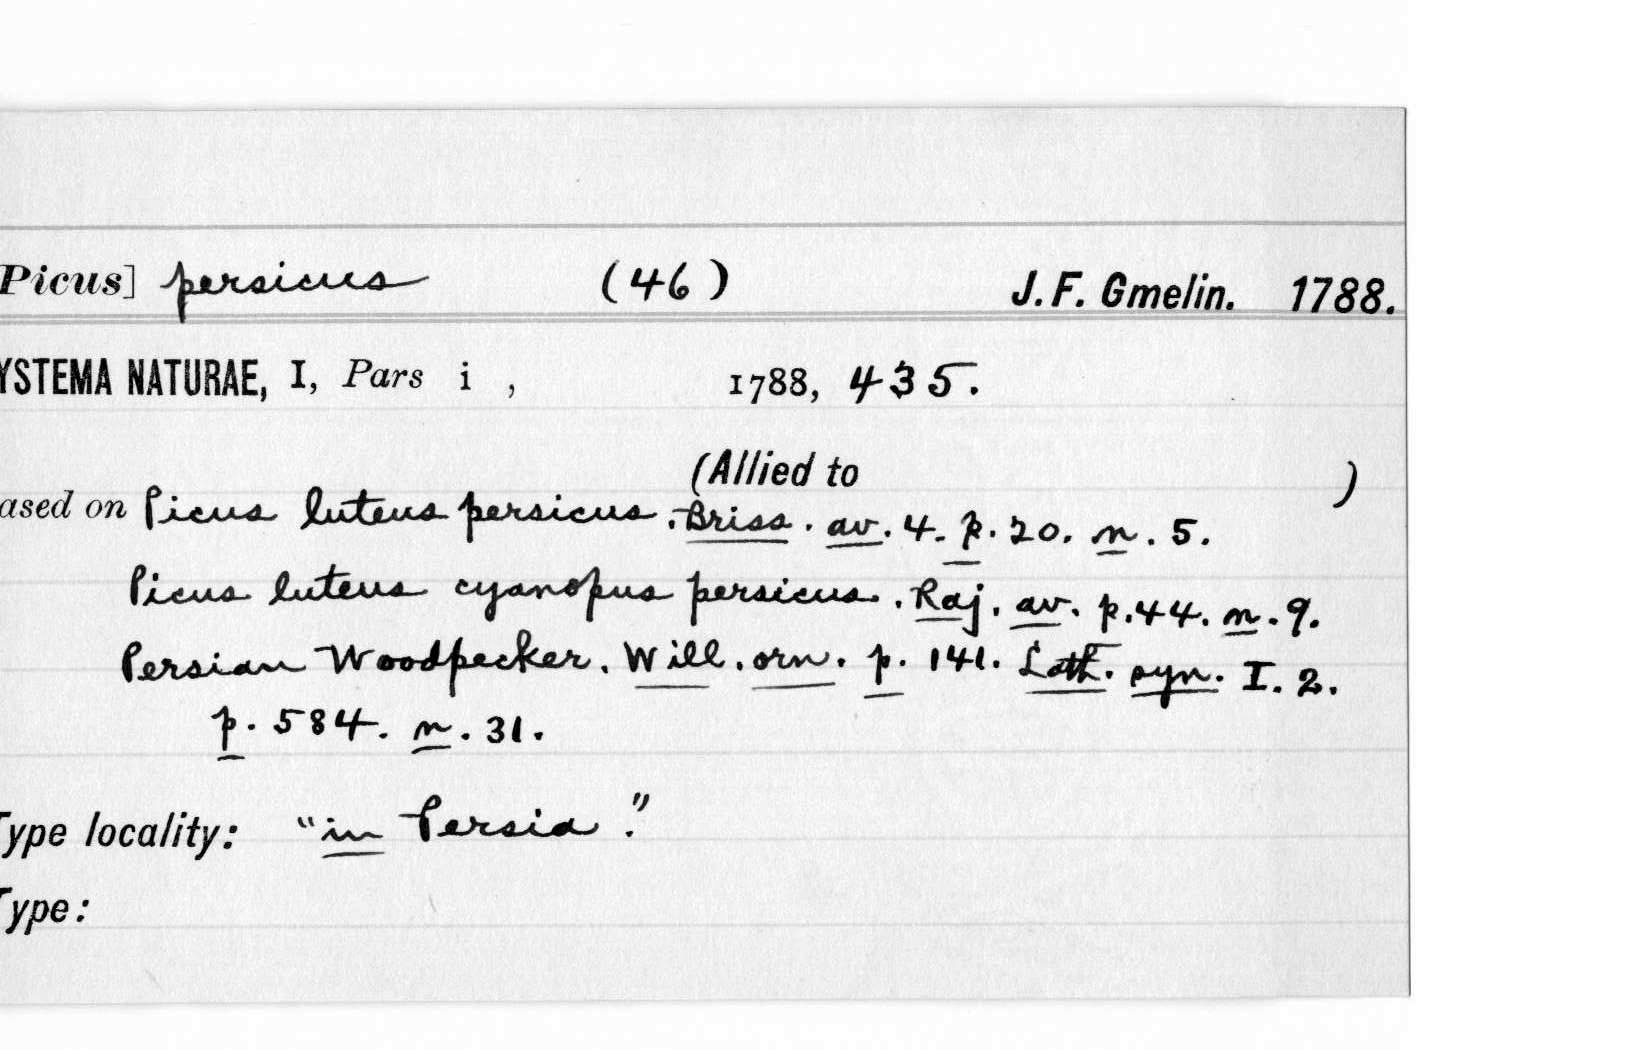 Picus] persicus (46) J. F. Gmelin. 1788.
YSTEMA NATURAE, I, Pars i , 1788, 435.
(Allied to )
ased on Picus luteus persicus. Briss. av. 4. p. 20. n. 5.
Picus luteus cyanopus persicus. Raj. av. p. 44. n. 9.
Persian Woodpecker. Will. orn. p. 141. Lath. syn. I. 2.
p. 584. n. 31.
Type locality: "in Persia."
Type: